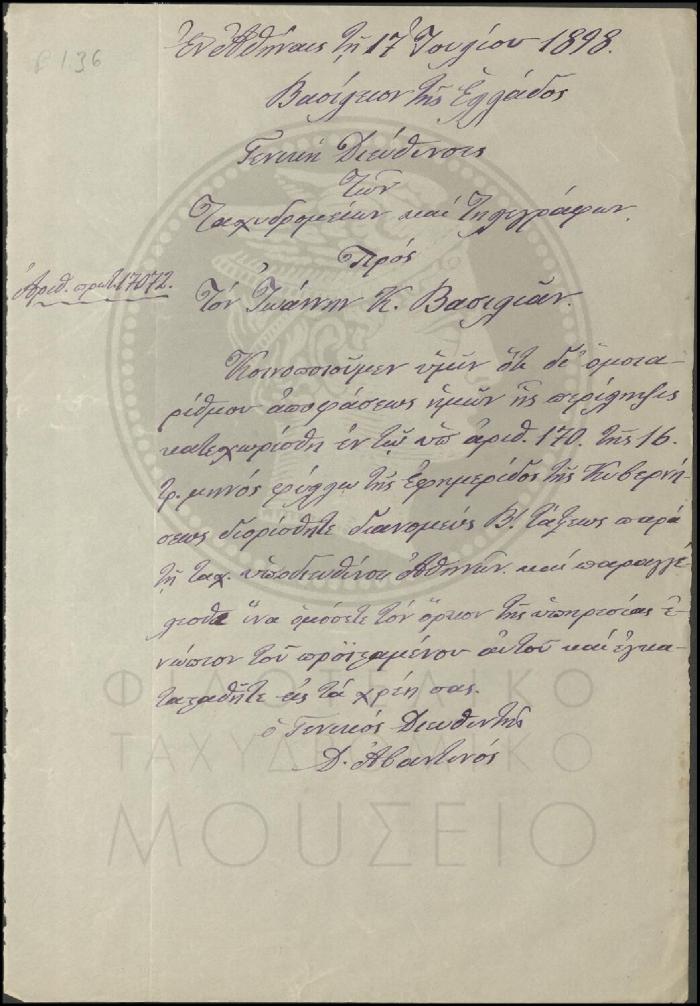 Ε 1.36
Ἐν Ἀθήναις τῇ 17 Ἰουλίου 1898.
Βασίλειον τῆς Ἑλλάδος
Γενική Διεύθυνσις
Τῶν
Ταχυδρομείων καί Τηλεγράφων.
Πρός
Ἀριθ. πρωτ. 17072.
Τόν Ἰωάννην Κ. Βασιλιᾶν.
Κοινοποιοῦμεν ὑμῖν ὅτι δι' ὁμοια-
ρίθμου ἀποφάσεως ἡμῶν ἧς περίληψις
κατεχωρίσθη ἐν τῷ ὑπ' ἀριθ. 170. τῆς 16.
τρ. μηνός φύλλῳ τῆς Ἐφημερίδος τῆς Κυβερνή-
σεως διορίσθητε διανομεύς Β! τάξεως παρά
τῇ ταχ. ὑποδιευθύνσει Ἀθηνῶν. καί παραγγέ-
λεσθε ἵνα ὁμόσετε τόν ὅρκον τῆς ὑπηρεσίας ἐ-
νώπιον τοῦ προϊσταμένου αὐτοῦ καί ἐγκα-
ταταθῆτε εἰς τά χρέη σας.
ὁ Γενικός Διευθυντής
Δ. Ἀβαντινός
ΦΙΛΟΤΕΛΙΚΟ
ΤΑΧΥΔΡΟΜΙΚΟ
ΜΟΥΣΕΙΟ